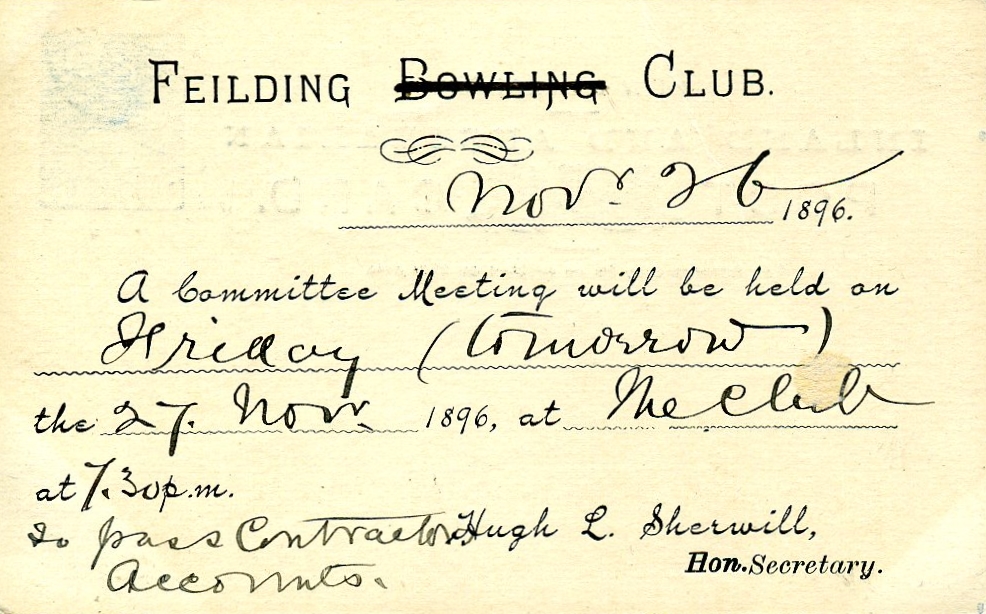 FEILDING BOWLING CLUB.
Novr. 26 1896.
A Committee Meeting will be held on
Friday (tomorrow)
the 27. Novr. 1896, at The Club
at 7.30 p.m.
to pass Contractors Hugh L. Sherwill,
Accounts. Hon. Secretary.